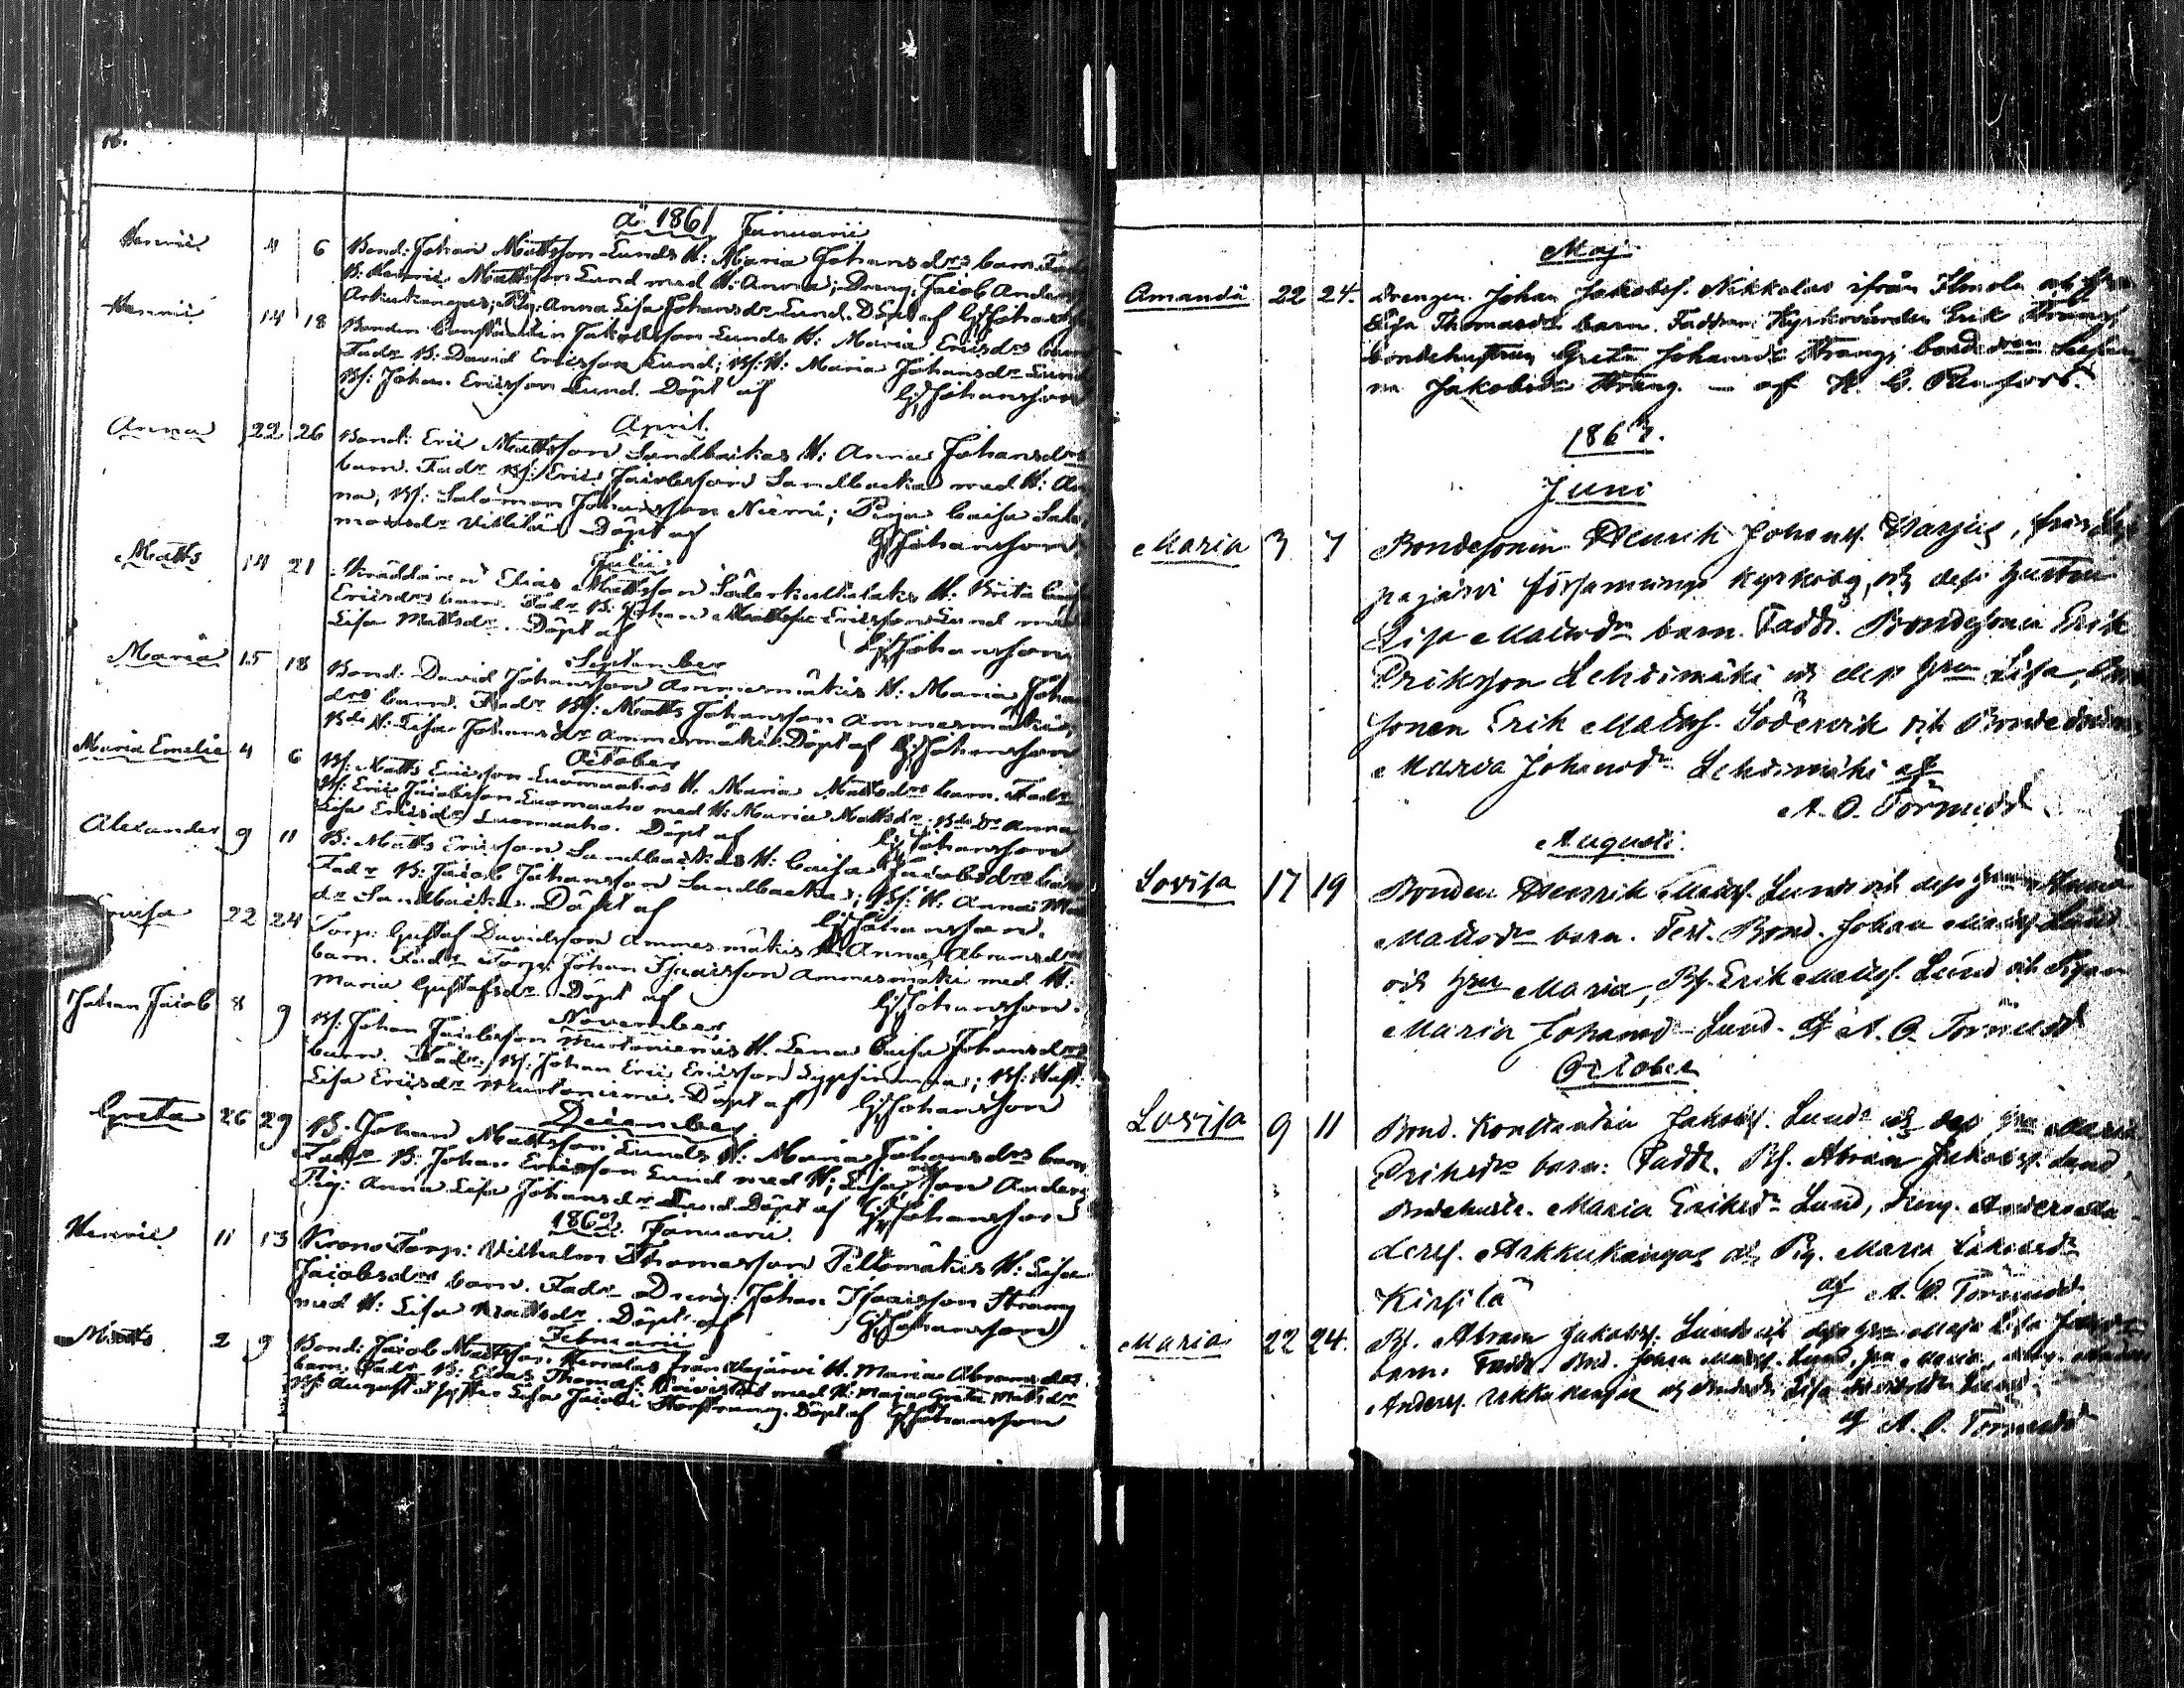 16.
å 1861 Januarii
Henric 4 6 Bond: Johan Mattsson Lunds H: Maria Johansdrs barn. Fadr
B: Henric Mattsson Lund med H: Anna; Dreng: Jacob Anders
Arkukangas; Pig: Anna Lisa Johansdr Lund. Döpt af GJohansson
Henric 14 18 Bonden Constantin Jakobsson Lunds H: Maria Ericsdrs barn
Fadr B: David Ericsson Lund; Bs: H: Maria Johansdr Lund
Bs: Johan Ericsson Lund. Döpt af GJohansson
April.
Anna 22 26 Bond: Eric Mattsson Sandbackas H: Anna Johansdrs
barn. Fadr Bs: Eric Jacobsson Sandbacka med H: An
na, Bs: Salomon Johansson Niemi; Pigan Caisa Salo
monsdr Döpt af GJohansson
Julii
Matts 14 21 Skräddaren Elias Mattsson H: Brita Caisa
Ericsdrs barn. Fadr B: Johan Ericsson Lund med
Lisa Mattsdr. Döpt af GJohansson
September
Maria 15 18 Bond: David Johansson Ammesmäkis H: Maria Johans
drs barn. Fadr Bs: Matts Johansson Ammesmäki,
Bds H: Lisa Johansdr Ammesmäki. Döpt af GJohansson
October
Maria Emelie 4 6 Bs: Matts Ericsson Luomaahos H. Maria Mattsdrs barn. Fadr
Bs: Eric Jacobsson Luomaaho med H: Maria Mattsdr; Anna
Lisa Ericsdr Luomaaho. Döpt af GJohansson
Alexander 9 11 B: Matts Ericsson Sandbackas H: Caisa Jacobsdrs barn
Fadr B: Jacob Johansson Sandbacka; Bs: H. Anna
dr Sandbacka. Döpt af GJohansson.
22 24 Torp: Gustaf Davidsson Ammesmäkis H. Anna Abramsdrs
barn. Fadr Torp: Johan Isacsson Ammesmäki med H:
Maria Gustafsdr. Döpt af GJohansson.
November
Johan Jacob 8 9 Bs: Johan Jacobsson Murtoniemis H. Lena Caisa Johansdrs
barn. Fadr. Bs: Johan Eric Ericsson
Lisa Ericsdr Murtoniemi. Döpt af GJohansson
December
Greta 26 29 B. Johan Mattsson Lunds H: Maria Johansdrs barn
Fadr B: Johan Ericsson Lund med H; Lisa
Pig: Anna Lisa Johansdr Lund. Döpt af GJohansson
1862. Januarii
Henric 11 13 Krono Torp: Wilhelm Thomasson Peltomäkis H: Lisa
Jacobsdrs barn. Fadr Dreng: Johan Isacsson Strang
med H: Lisa Mattsdr. Döpt af GJohansson
Februarii
Matts 2 9 Bond: Jacob Mattsson från Alajärvi H. Maria Abramsdrs
barn. Fadr B: Elias Thomass. med H: Maja Greta Mattsdr
Bs: August Lisa Jacobs Döpt af GJohansson
Maj
Amanda 22 24. Drengen Johan Jakobss. Nikkolas ifrån Ilmola och
Lisa Thomasdr barn. Faddrar Kyrkovärden Erik Strang
bondehustrun Greta Johansdr Strang; bondedren
na Jakobsdr Strang. – af K. G.
1863.
Juni
Maria 3 7 Bondesonen Henrik Johanss. Warjus, från
pajärvi församlings kyrkoby, och dess hustru
Lisa Mattsdr barn. Faddr. Bondesonen Erik
Eriksson Lehdimäki och dess Hru Lisa, Bonde
sonen Erik Mattss. Södervik och Bondedottren
Maria Johansdr Lehdimäki af
A. O. Törnudd
Augusti.
Lovisa 17 19 Bonden Henrik Mattss. Lunds och dess Hru Anna
Mattsdr barn. Test. Bond. Johan Mattss. Lund
och Hru Maria, Bs. Erik Mattss. Lund och Pigan
Maria Johansdr Lund. af A. O. Törnudd
October
Lovisa 9 11 Bond. Konstantin Jakobss. Lunds och dess Hru Maria
Eriksdrs barn: Faddr. Bs. Abram Jakobss. Lund,
Bondehustr. Maria Eriksdr Lund, Dreng. Anders An
derss. Arkkukangas och Pig. Maria Jakobsdr
Kirsilä af A. O. Törnudd
Maria 22 24. Bs. Abram Jakobss. Lunds och dess Hru Maja Lisa
barn. Faddr. Bnd. Johan Mattss. Lund, Hru Maria, Dreng. Anders
Anderss. Arkkukangas och Lisa Lund.
af A. O. Törnudd